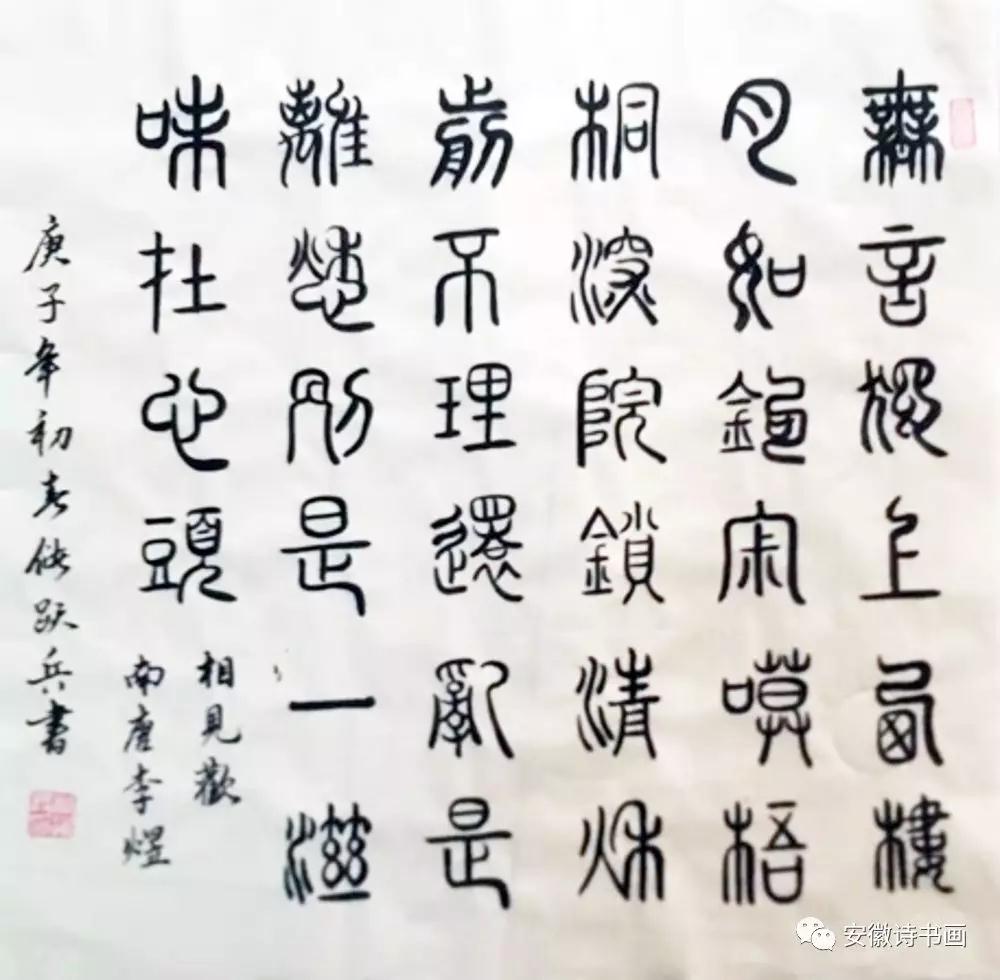 無言獨上西樓
月如鉤寂寞梧
桐深院鎖清秋
剪不理還亂是
離愁別是一滋
味在心頭
相見歡
南唐李煜
庚子年初春储跃兵書
安徽诗书画